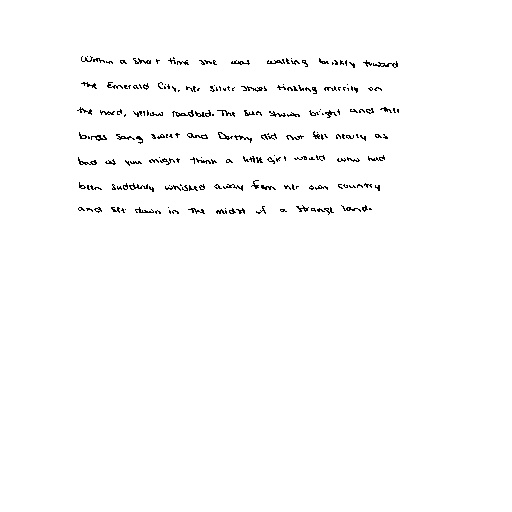 Within a short time she was walking briskly toward
the Emerald City, her silver shoes tinkling merrily on
the hard, yellow roadbed. The sun shown bright and the
birds sang sweet and Dorthy did not feel nearly as
bad as you might think a little girl would who had
been suddenly whisked away from her own country
and set down in the midst of a strange land.